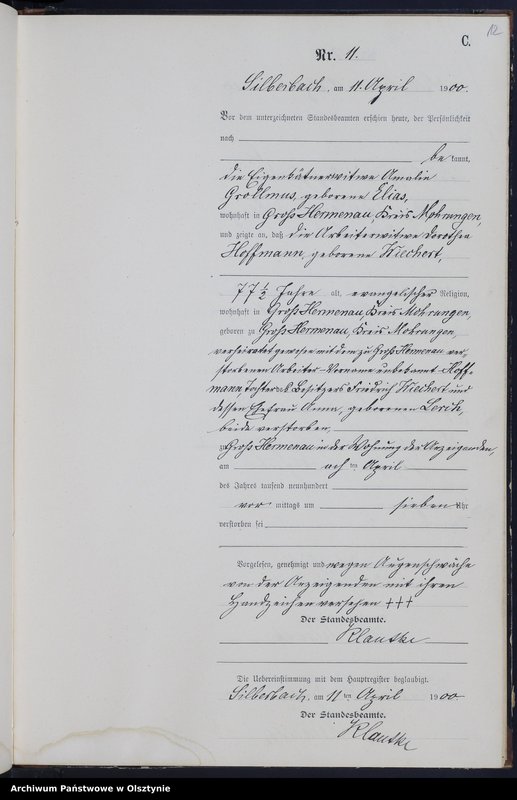 12
C.
Nr. 11.
Silberbach, am 11. April 1900.
Vor dem unterzeichneten Standesbeamten erschien heute, der Persönlichkeit
nach
be kannt,
die Eigenkätnerwitwe Amalie
Grollmus, geborene Elias,
wohnhaft in Groß Hermenau, Kreis Mohrungen,
und zeigte an, daß die Arbeiterwitwe Dorothea
Hoffmann, geborene Wiechert,
77 1/2 Jahre alt, evangelischer Religion,
wohnhaft in Groß Hermenau, Kreis Mohrungen,
geboren zu Groß Hermenau, Kreis Mohrungen,
verheiratet gewesen mit dem zu Groß Hermenau ver-
storbenen Arbeiter - Vorname unbekannt - Hoff-
mann, Tochter des Besitzers Friedrich Wiechert und
dessen Ehefrau Anna, geborenen Lerch,
beide verstorben,
zu Groß Hermenau in der Wohnung der Anzeigenden,
am acht ten April
des Jahres tausend neunhundert
vor mittags um sieben Uhr
verstorben sei
Vorgelesen, genehmigt und wegen Augenschwäche
von der Anzeigenden mit ihren
Handzeichen versehen +++
Der Standesbeamte.
Klautke
Die Uebereinstimmung mit dem Hauptregister beglaubigt.
Silberbach, am 11 ten April 1900.
Der Standesbeamte.
Klautke
Archiwum Państwowe w Olsztynie